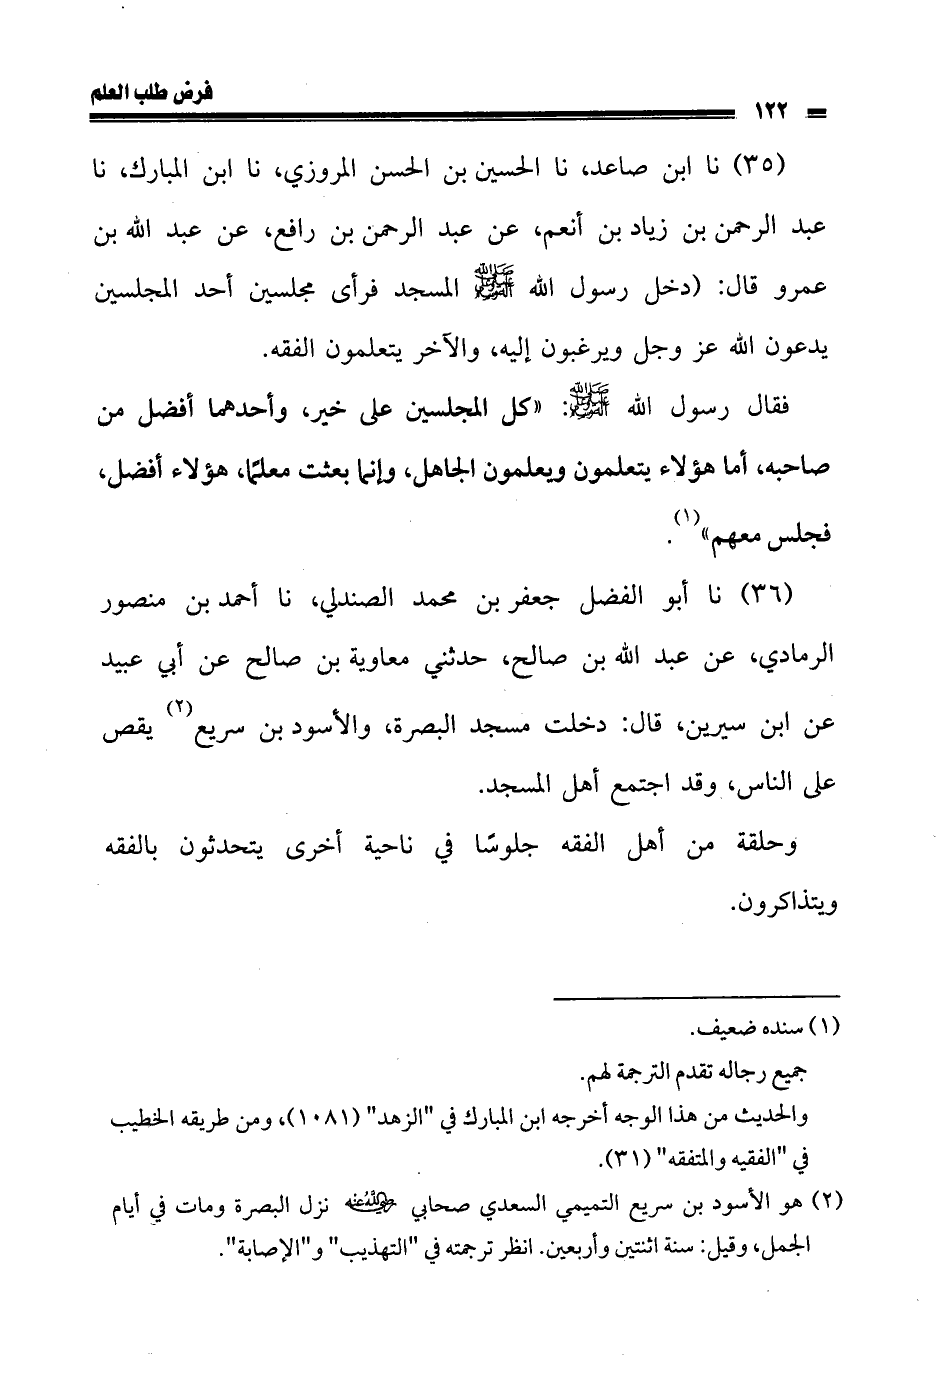 فرض طلب العلم
١٢٢
(٣٥) نا ابن صاعد، نا الحسين بن الحسن المروزي، نا ابن المبارك، نا
عبد الرحمن بن زياد بن أنعم، عن عبد الرحمن بن رافع، عن عبد الله بن
عمرو قال: (دخل رسول الله ﷺ المسجد فرأى مجلسين أحد المجلسين
يدعون الله عز وجل ويرغبون إليه، والآخر يتعلمون الفقه.
فقال رسول الله ﷺ: «كل المجلسين على خير، وأحدهما أفضل من
صاحبه، أما هؤلاء يتعلمون ويعلمون الجاهل، وإنما بعثت معلمًا، هؤلاء أفضل،
فجلس معهم»(١).
(٣٦) نا أبو الفضل جعفر بن محمد الصندلي، نا أحمد بن منصور
الرمادي، عن عبد الله بن صالح، حدثني معاوية بن صالح عن أبي عبيد
عن ابن سيرين، قال: دخلت مسجد البصرة، والأسود بن سريع(٢) يقص
على الناس، وقد اجتمع أهل المسجد.
وحلقة من أهل الفقه جلوسًا في ناحية أخرى يتحدثون بالفقه
ويتذاكرون.
(١) سنده ضعيف.
جميع رجاله تقدم الترجمة لهم.
والحديث من هذا الوجه أخرجه ابن المبارك في "الزهد" (١٠٨١)، ومن طريقه الخطيب
في "الفقيه والمتفقه" (٣١).
(٢) هو الأسود بن سريع التميمي السعدي صحابي رضي الله عنه نزل البصرة ومات في أيام
الجمل، وقيل: سنة اثنتين وأربعين. انظر ترجمته في "التهذيب" و"الإصابة".